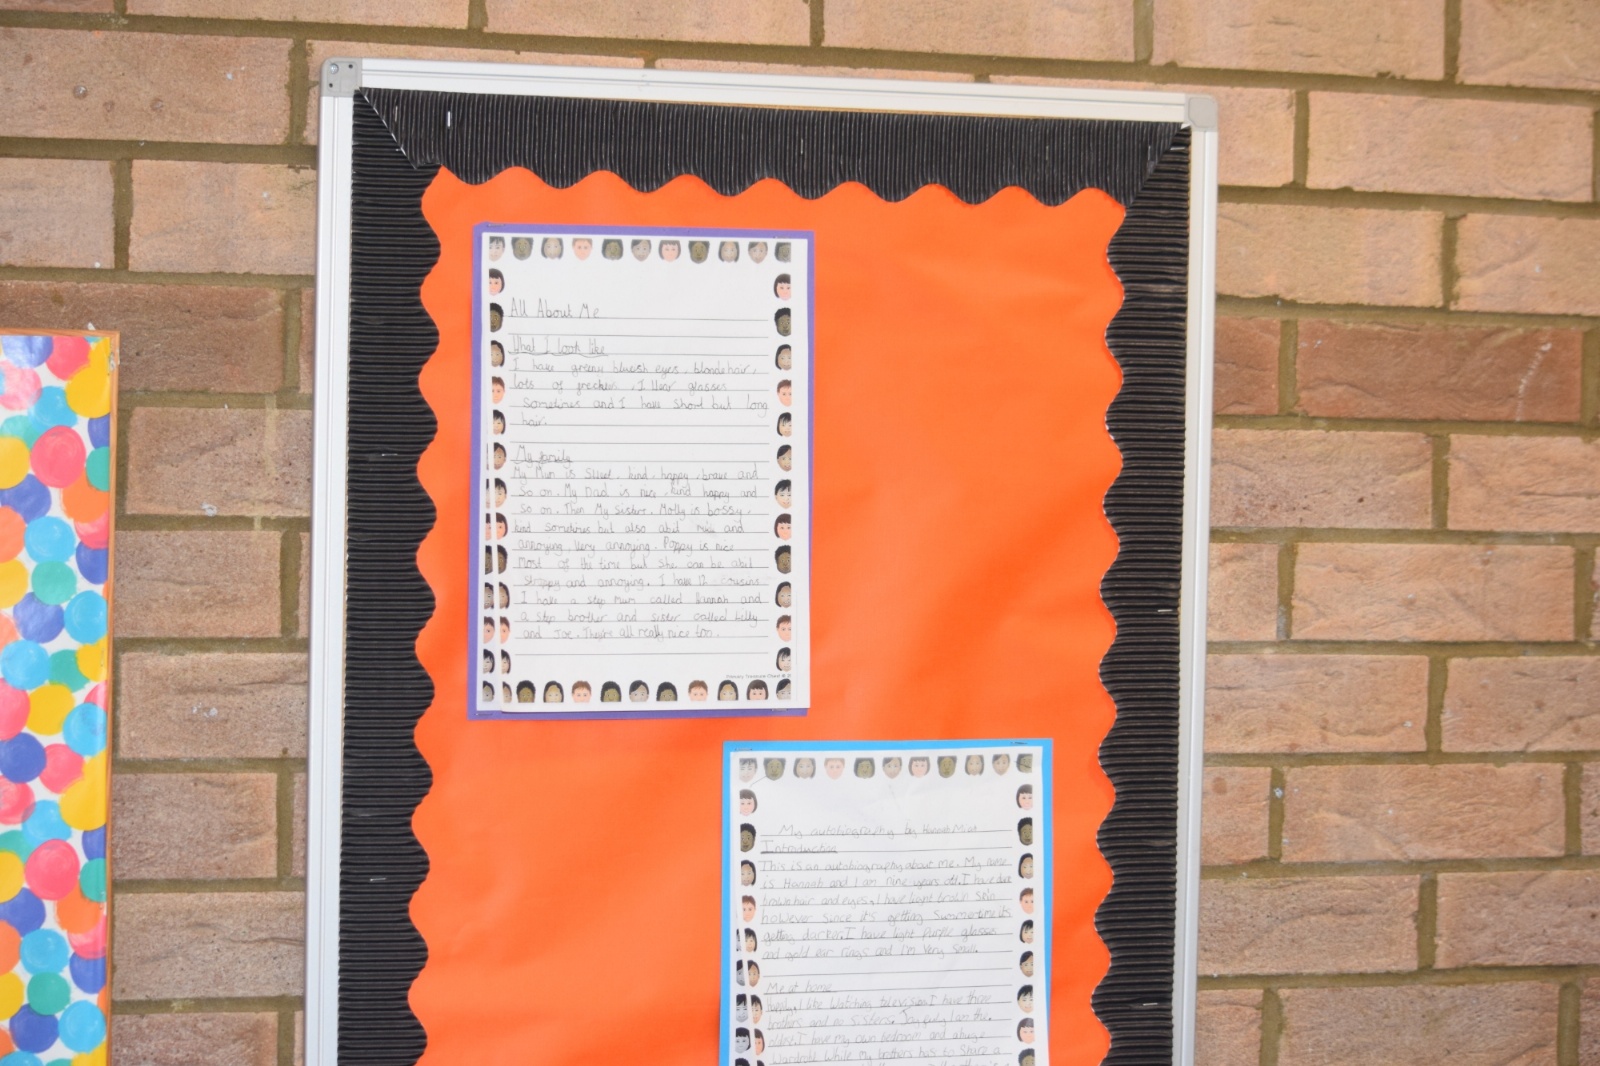 All About Me
What I look like
I have greeny blueish eyes, blonde hair,
lots of freckers, I wear glasses
Sometimes and I have short but long
hair.
My family
My Mum is Sweet, kind, happy, brave and
So on. My Dad is nice, kind happy and
so on. Then My Sisters. Molly is bossy,
kind sometimes but also abit and
annoying, Very annoying. Poppy is nice
most of the time but she can be abit
stroppy and annoying. I have 12 cousins
I have a step mum called Hannah and
a step brother and sister called Lilly
and Joe. They're all really nice too.
My autobiography by Hannah
Introduction
This is an autobiography about me. My name
is Hannah and I am nine years old. I have
brown hair and eyes, I have light brown skin
however since it's getting Summertime it's
getting darker. I have light Purple glasses
and gold ear rings and I'm Very small.
Me at home
I like watching television. I have three
brothers and no sisters. I am the
oldest. I have my own bedroom and a huge
Wardrobe while my brothers has to Share a